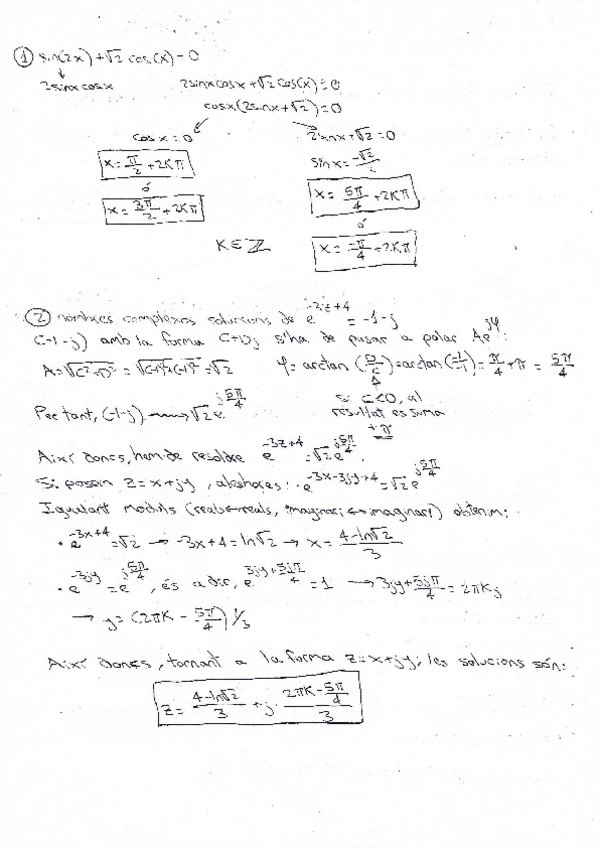 ① sin(2x)+√2 cos(x)=0
↓
2sinxcosx 2sinxcosx+√2cos(x)=0
cosx(2sinx+√2)=0
cosx=0 2sinx+√2=0
x=π/2+2Kπ sinx=-√2/2
ó x=5π/4+2Kπ
x=3π/2+2Kπ ó
K∈ℤ x=-π/4+2Kπ
② nombres complexos solucions de e^(-3z+4)=-1-j
(-1-j) amb la forma C+Dj s'ha de passar a polar Ae^(jφ):
A=√(C²+D²)=√((-1)²+(-1)²)=√2 φ=arctan(D/C)=arctan(-1/-1)=π/4+π=5π/4
si C<0, al
resultat es suma
+π
Per tant, (-1-j)→√2e^(j5π/4)
Així doncs, hem de resoldre e^(-3z+4)=√2e^(j5π/4).
Si posem z=x+jy, aleshores: e^(-3x-3jy+4)=√2e^(j5π/4)
Igualant mòduls (reals↔reals, imaginari↔imaginari) obtenim:
· e^(-3x+4)=√2 → -3x+4=ln√2 → x=(4-ln√2)/3
· e^(-3jy)=e^(j5π/4), és a dir, e^(3jy+5jπ/4)=1 → 3jy+5jπ/4=2πKj
→ y=(2πK-5π/4)1/3
Així doncs, tornant a la forma z=x+jy, les solucions són:
z=(4-ln√2)/3+j·(2πK-5π/4)/3